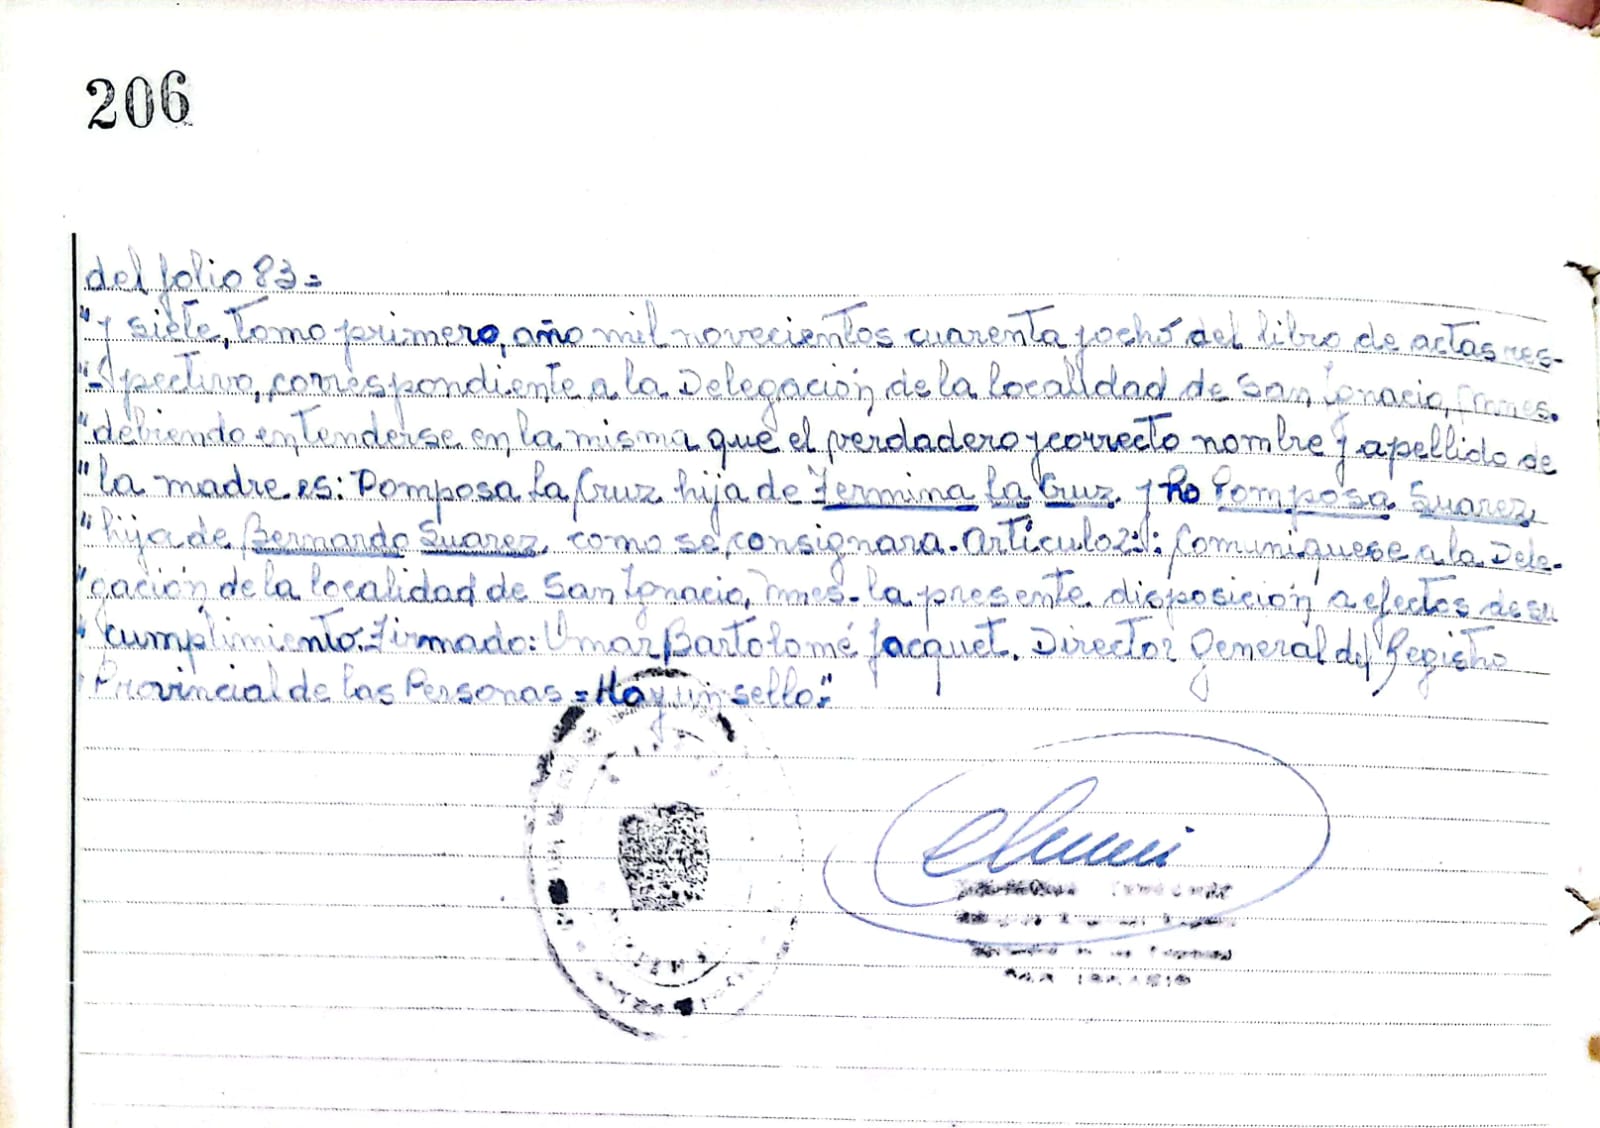 206
del folio 83=
"y siete, tomo primero, año mil novecientos cuarenta y ocho del libro de actas res-
"-pectivo, correspondiente a la Delegación de la localidad de San Ignacio,
"debiendo entenderse en la misma que el verdadero y correcto nombre y apellido de
"la madre es: Pomposa La Cruz hija de Fermina La Cruz y no Pomposa Suarez
"hija de Bernardo Suarez, como se consignara. Articulo 2º: Comuniquese a la Dele-
"gación de la localidad de San Ignacio, Mnes- la presente disposición a efectos de su
"cumplimiento. Firmado: Omar Bartolomé Jacquet. Director General del Registro
"Provincial de las Personas = Hay un sello."